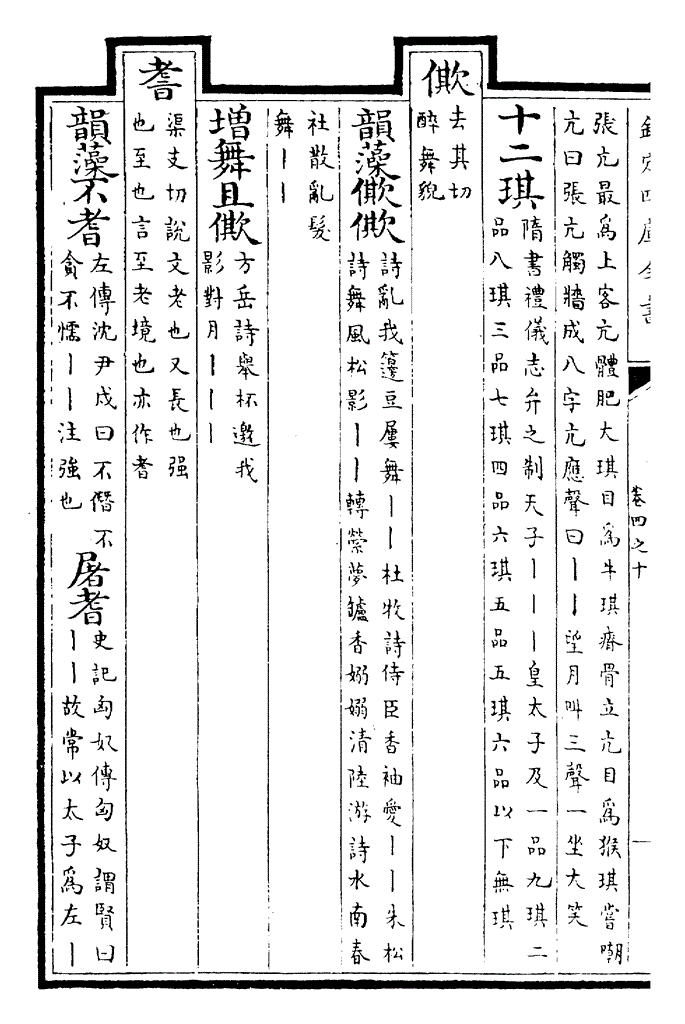 欽定四庫全書
卷四之十
張亢最爲上客亢體肥大琪目爲牛琪瘠骨立亢目爲猴琪嘗嘲
亢曰張亢觸牆成八字亢應聲曰丨丨望月叫三聲一坐大笑
十二琪
隋書禮儀志弁之制天子丨丨丨皇太子及一品九琪二
品八琪三品七琪四品六琪五品五琪六品以下無琪
僛
去其切
醉舞貌
韻藻僛僛
詩亂我籩豆屢舞丨丨杜牧詩侍臣香袖愛丨丨朱松
詩舞風松影丨丨轉縈夢鑪香嫋嫋清陸游詩水南春
社散亂髮
舞丨丨
增舞且僛
方岳詩舉杯邀我
影對月丨丨丨
耆
渠支切說文老也又長也强
也至也言至老境也亦作耆
韻藻不耆
左傳沈尹戍曰不僭不
貪不懦丨丨注強也
屠耆
史記匈奴傳匈奴謂賢曰
丨丨故常以太子爲左丨